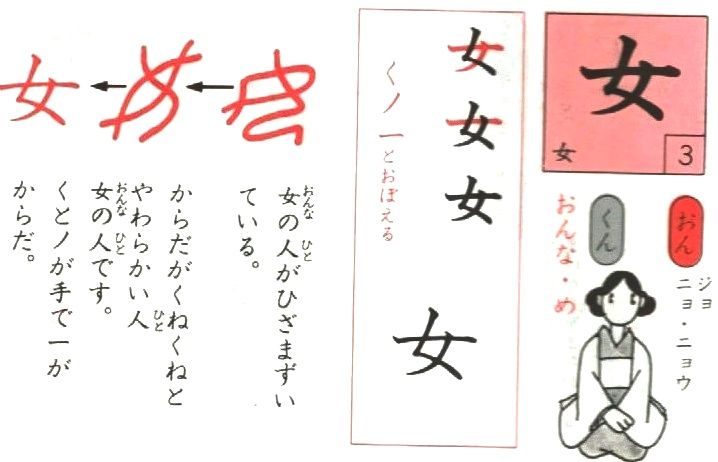 女
女
3
おん
ジョ
ニョ・ニョウ
くん
おんな・め
女
女
女
くノ一とおぼえる
女
女
女の人がひざまずい
ている。
からだがくねくねと
やわらかい人
女の人です。
くとノが手で一が
からだ。